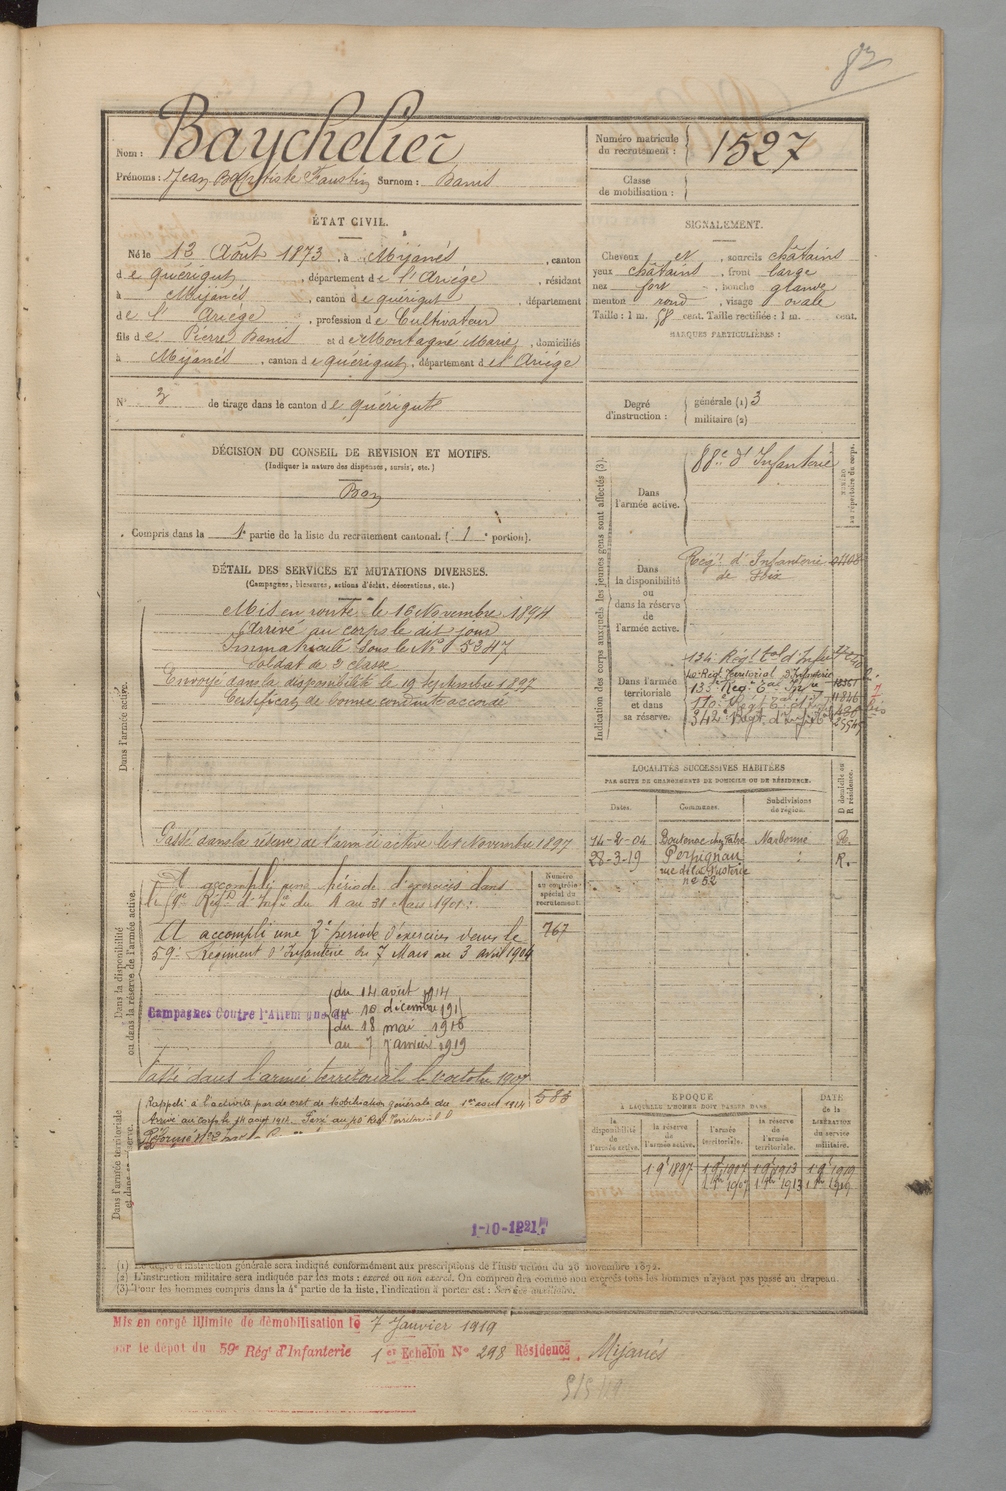 82
Nom : Baychelier
Prénoms : Jean Baptiste Faustin Surnom : Banis
Numéro matricule du recrutement : 1527
Classe de mobilisation :
ÉTAT CIVIL.
Né le 12 Août 1873, à Mijanès, canton
de Quérigut, département de l'Ariège, résidant
à Mijanès, canton de Quérigut, département
de l'Ariège, profession de Cultivateur
fils de Pierre Banis et de Montagné Marie, domiciliés
à Mijanès, canton de Quérigut, département de l'Ariège
N° 3 de tirage dans le canton de Quérigut
SIGNALEMENT.
Cheveux et, sourcils châtains
yeux châtains, front large
nez fort, bouche grande
menton rond, visage ovale
Taille : 1 m. 58 cent. Taille rectifiée : 1 m. cent.
MARQUES PARTICULIÈRES :
Degré d'instruction : générale (1) 3
militaire (2)
DÉCISION DU CONSEIL DE REVISION ET MOTIFS.
(Indiquer la nature des dispenses, sursis, etc.)
Bon
Compris dans la 1e partie de la liste du recrutement cantonal. (1e portion).
DÉTAIL DES SERVICES ET MUTATIONS DIVERSES.
(Campagnes, blessures, actions d'éclat, décorations, etc.)
Dans l'armée active.
Mis en route le 16 Novembre 1894
Arrivé au corps le dit jour
Immatriculé sous le N° 5347
Soldat de 2 classe
Envoyé dans la disponibilité le 19 Septembre 1897
Certificat de bonne conduite accordé
Passé dans la réserve de l'armée active le 1 Novembre 1897
Dans la disponibilité ou dans la réserve de l'armée active.
A accompli une période d'exercices dans
le Régt d'Infie du 4 au 31 Mars 1901.
A accompli une 2e période d'exercices dans le
59e Régiment d'Infanterie du 7 Mars au 3 avril 1904
Numéro au contrôle spécial du recrutement.
767
Campagnes Contre l'Allemagne
du 14 août 1914
au 10 décembre 191
du 18 mai 1916
au 7 janvier 1919
Passé dans l'armée territoriale le 1 octobre 1907
583
Dans l'armée territoriale et dans sa réserve.
Rappelé à l'activité par décret de Mobilisation générale du 1er août 1914
Arrivé au corps le 14 août 1914. Passé au 40 Reg Territorial
1-10-1921
Indication des corps auxquels les jeunes gens sont affectés (3).
NUMÉRO au répertoire du corps.
Dans l'armée active.
88e d'Infanterie
Dans la disponibilité ou dans la réserve de l'armée active.
Régt d'Infanterie
de Foix
Dans l'armée territoriale et dans sa réserve.
134 Régt tal d'Infie
Régt Territorial d'Infanterie
133e Régt
342e Régt d'Infie
LOCALITÉS SUCCESSIVES HABITÉES
PAR SUITE DE CHANGEMENTS DE DOMICILE OU DE RÉSIDENCE.
Dates. Communes. Subdivisions de région. D domicile ou R résidence.
14-2-04 Boutenac Narbonne R.
28-3-19 Perpignan " R.
rue de la
n° 52
EPOQUE
À LAQUELLE L'HOMME DOIT PASSER DANS
la disponibilité de l'armée active. la réserve de l'armée active. l'armée territoriale. la réserve de l'armée territoriale. DATE de la LIBÉRATION du service militaire.
1 9e 1897 1 9e 1907 1 9e 1913 1 9e 1919
(1) Le degré d'instruction générale sera indiqué conformément aux prescriptions de l'instruction du 26 novembre 1872.
(2) L'instruction militaire sera indiquée par les mots : exercé ou non exercé. On comprendra comme non exercés tous les hommes n'ayant pas passé au drapeau.
(3) Pour les hommes compris dans la 4e partie de la liste, l'indication à porter est : Service auxiliaire.
Mis en congé illimité de démobilisation le 7 Janvier 1919
par le dépôt du 59e Rég' d'Infanterie 1er Echelon N° 298 Résidence, Mijanès